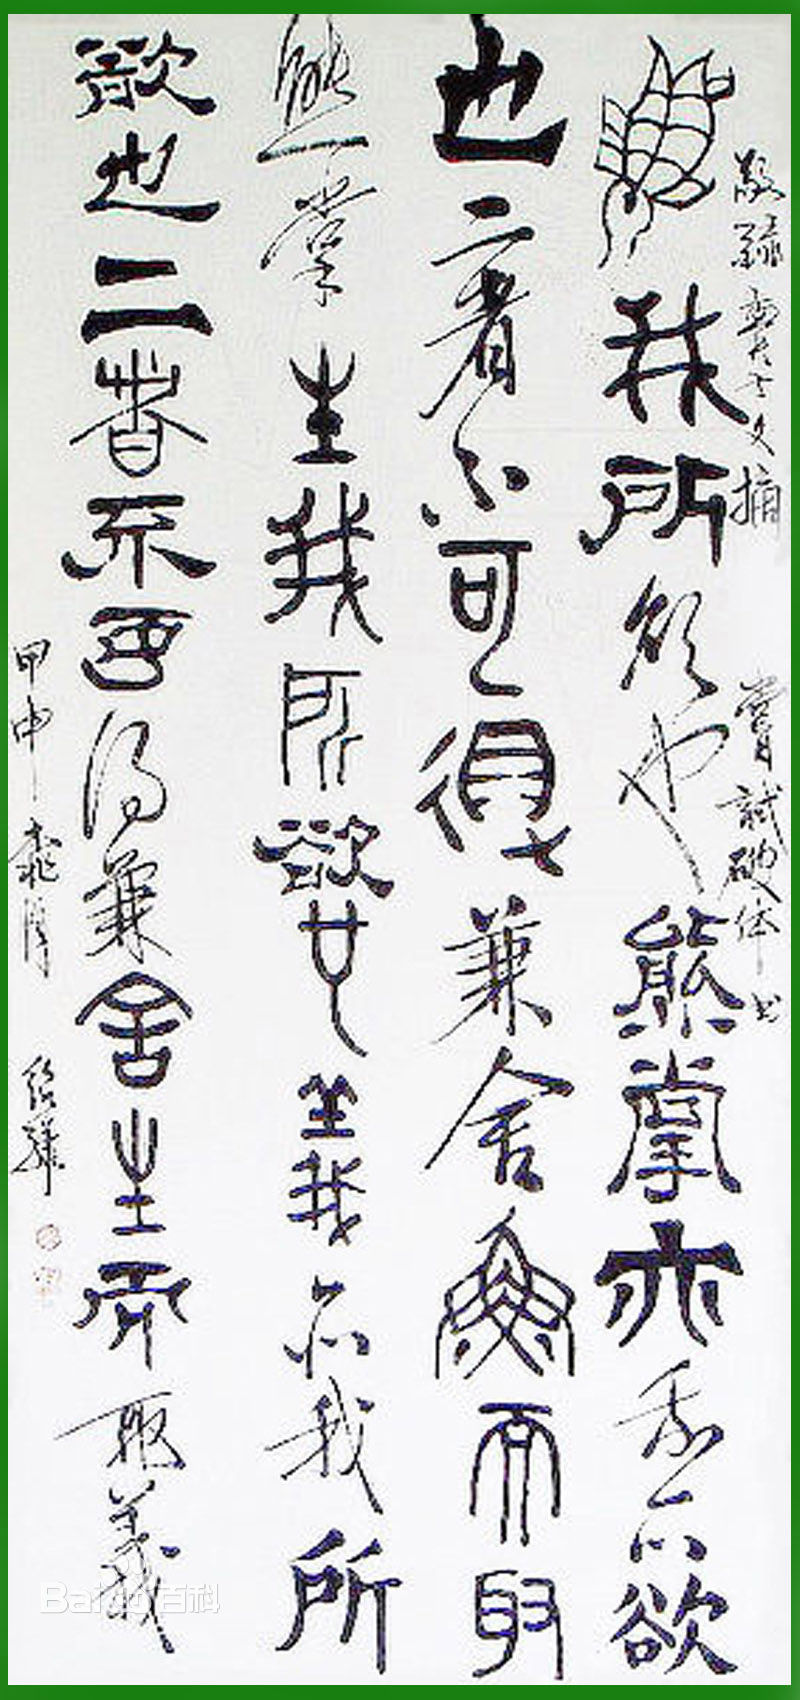 敬 文摘 嘗試破体书
魚我所欲也熊掌亦我所欲
也二者不可得兼舍魚而取
熊掌生我所欲也義亦我所
欲也二者不可得兼舍生而取義
甲申桃月
Baidu百科